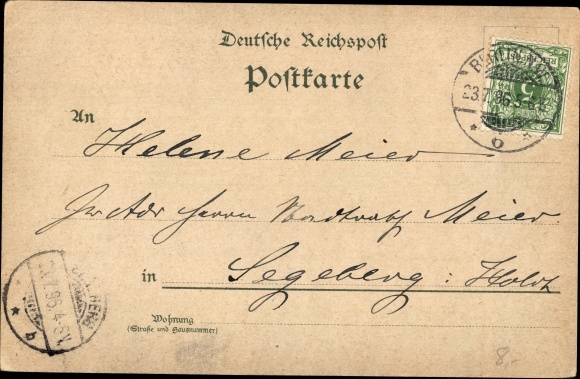 Deutsche Reichspost
Postkarte
An
Helene Meier
Pr Adr Herrn Stadtrath Meier
in Segeberg: Holst
Wohnung
(Straße und Hausnummer)
BERLIN
23.7.96.5-6N.
b
23.7.96.4-5N.
b
8,-